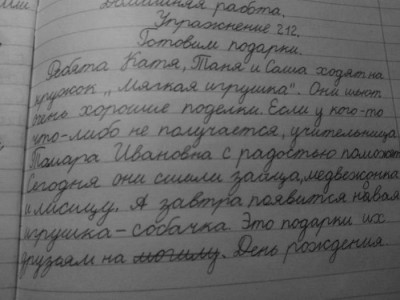 Домашняя работа.
Упражнение 212.
Готовим подарки.
Ребята Катя, Таня и Саша ходят на
кружок „Мягкая игрушка". Они шьют
очень хорошие поделки. Если у кого-то
что-либо не получается, учительница
Тамара Ивановна с радостью поможет.
Сегодня они сшили зайца, медвежонка
и лисицу. А завтра появится новая
игрушка - собачка. Это подарки их
друзьям на могилу. День рождения